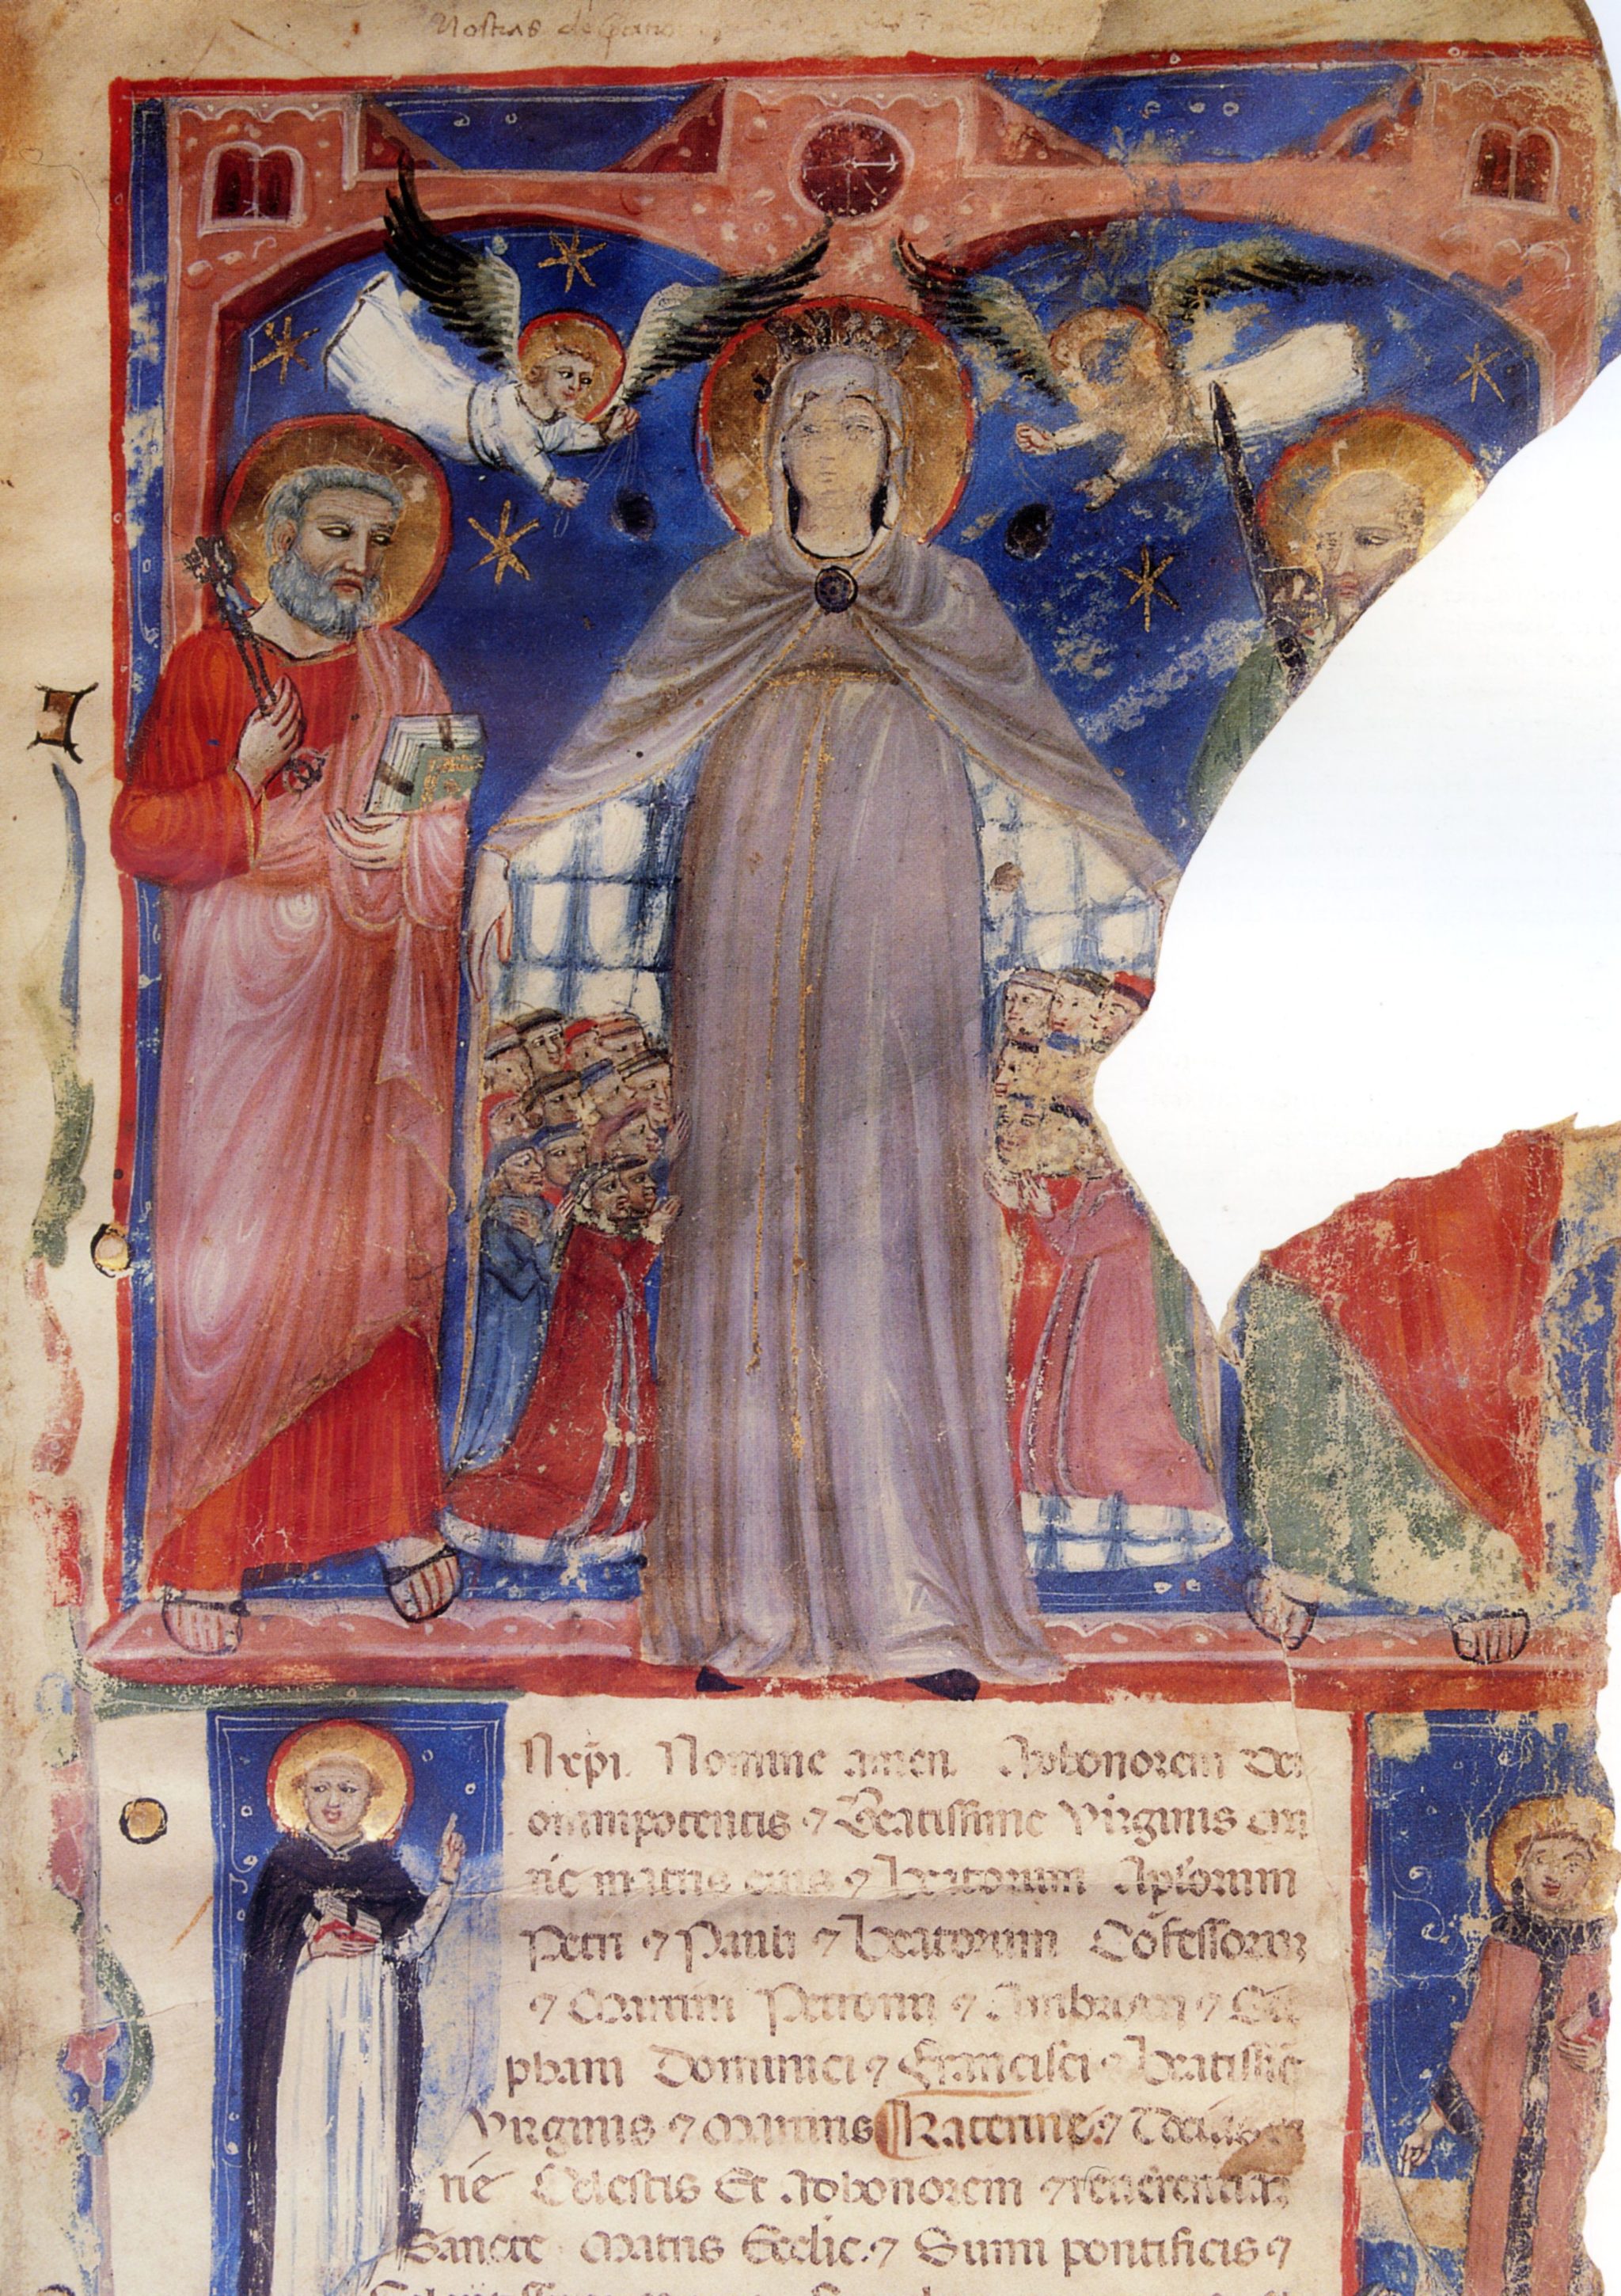 Nostras de
N xp̄i. Nomine amen. Ad honorem Dei
omnipotentis ⁊ Beatissime Virginis ma
rie matris eius ⁊ beatorum Aplorum
Petri ⁊ Pauli ⁊ beatorum Cōfessorum
⁊ Martini Petronij ⁊ Ambrosij ⁊
Dominici ⁊ Francisci ⁊ beatissie
Virginis ⁊ Martiris Katerine ⁊
rie Celestis Et Ad honorem ⁊ reuerentiam
Sancte Matris Ecclie. ⁊ Sumi pontificis ⁊